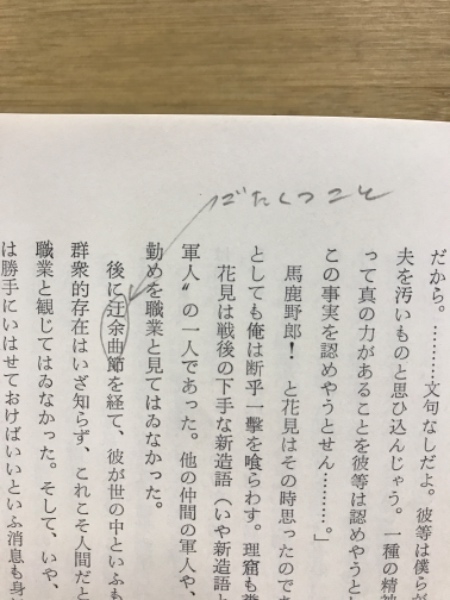 だから。………文句なしだよ。彼等は僕らが
夫を汚いものと思ひ込んじゃう。一種の精神
って真の力があることを彼等は認めやうと
この事実を認めやうとせん………。」
馬鹿野郎！　と花見はその時思ったので
としても俺は断乎一擊を喰らわす。理窟も
花見は戦後の下手な新造語（いや新造語と
軍人〟の一人であった。他の仲間の軍人や、
勤めを職業と見てはゐなかった。
後に迂余曲節を経て、彼が世の中といふも
群衆的存在はいざ知らず、これこそ人間だと
職業と観じてはゐなかった。そして、いや、
は勝手にいはせておけばいいといふ消息も身